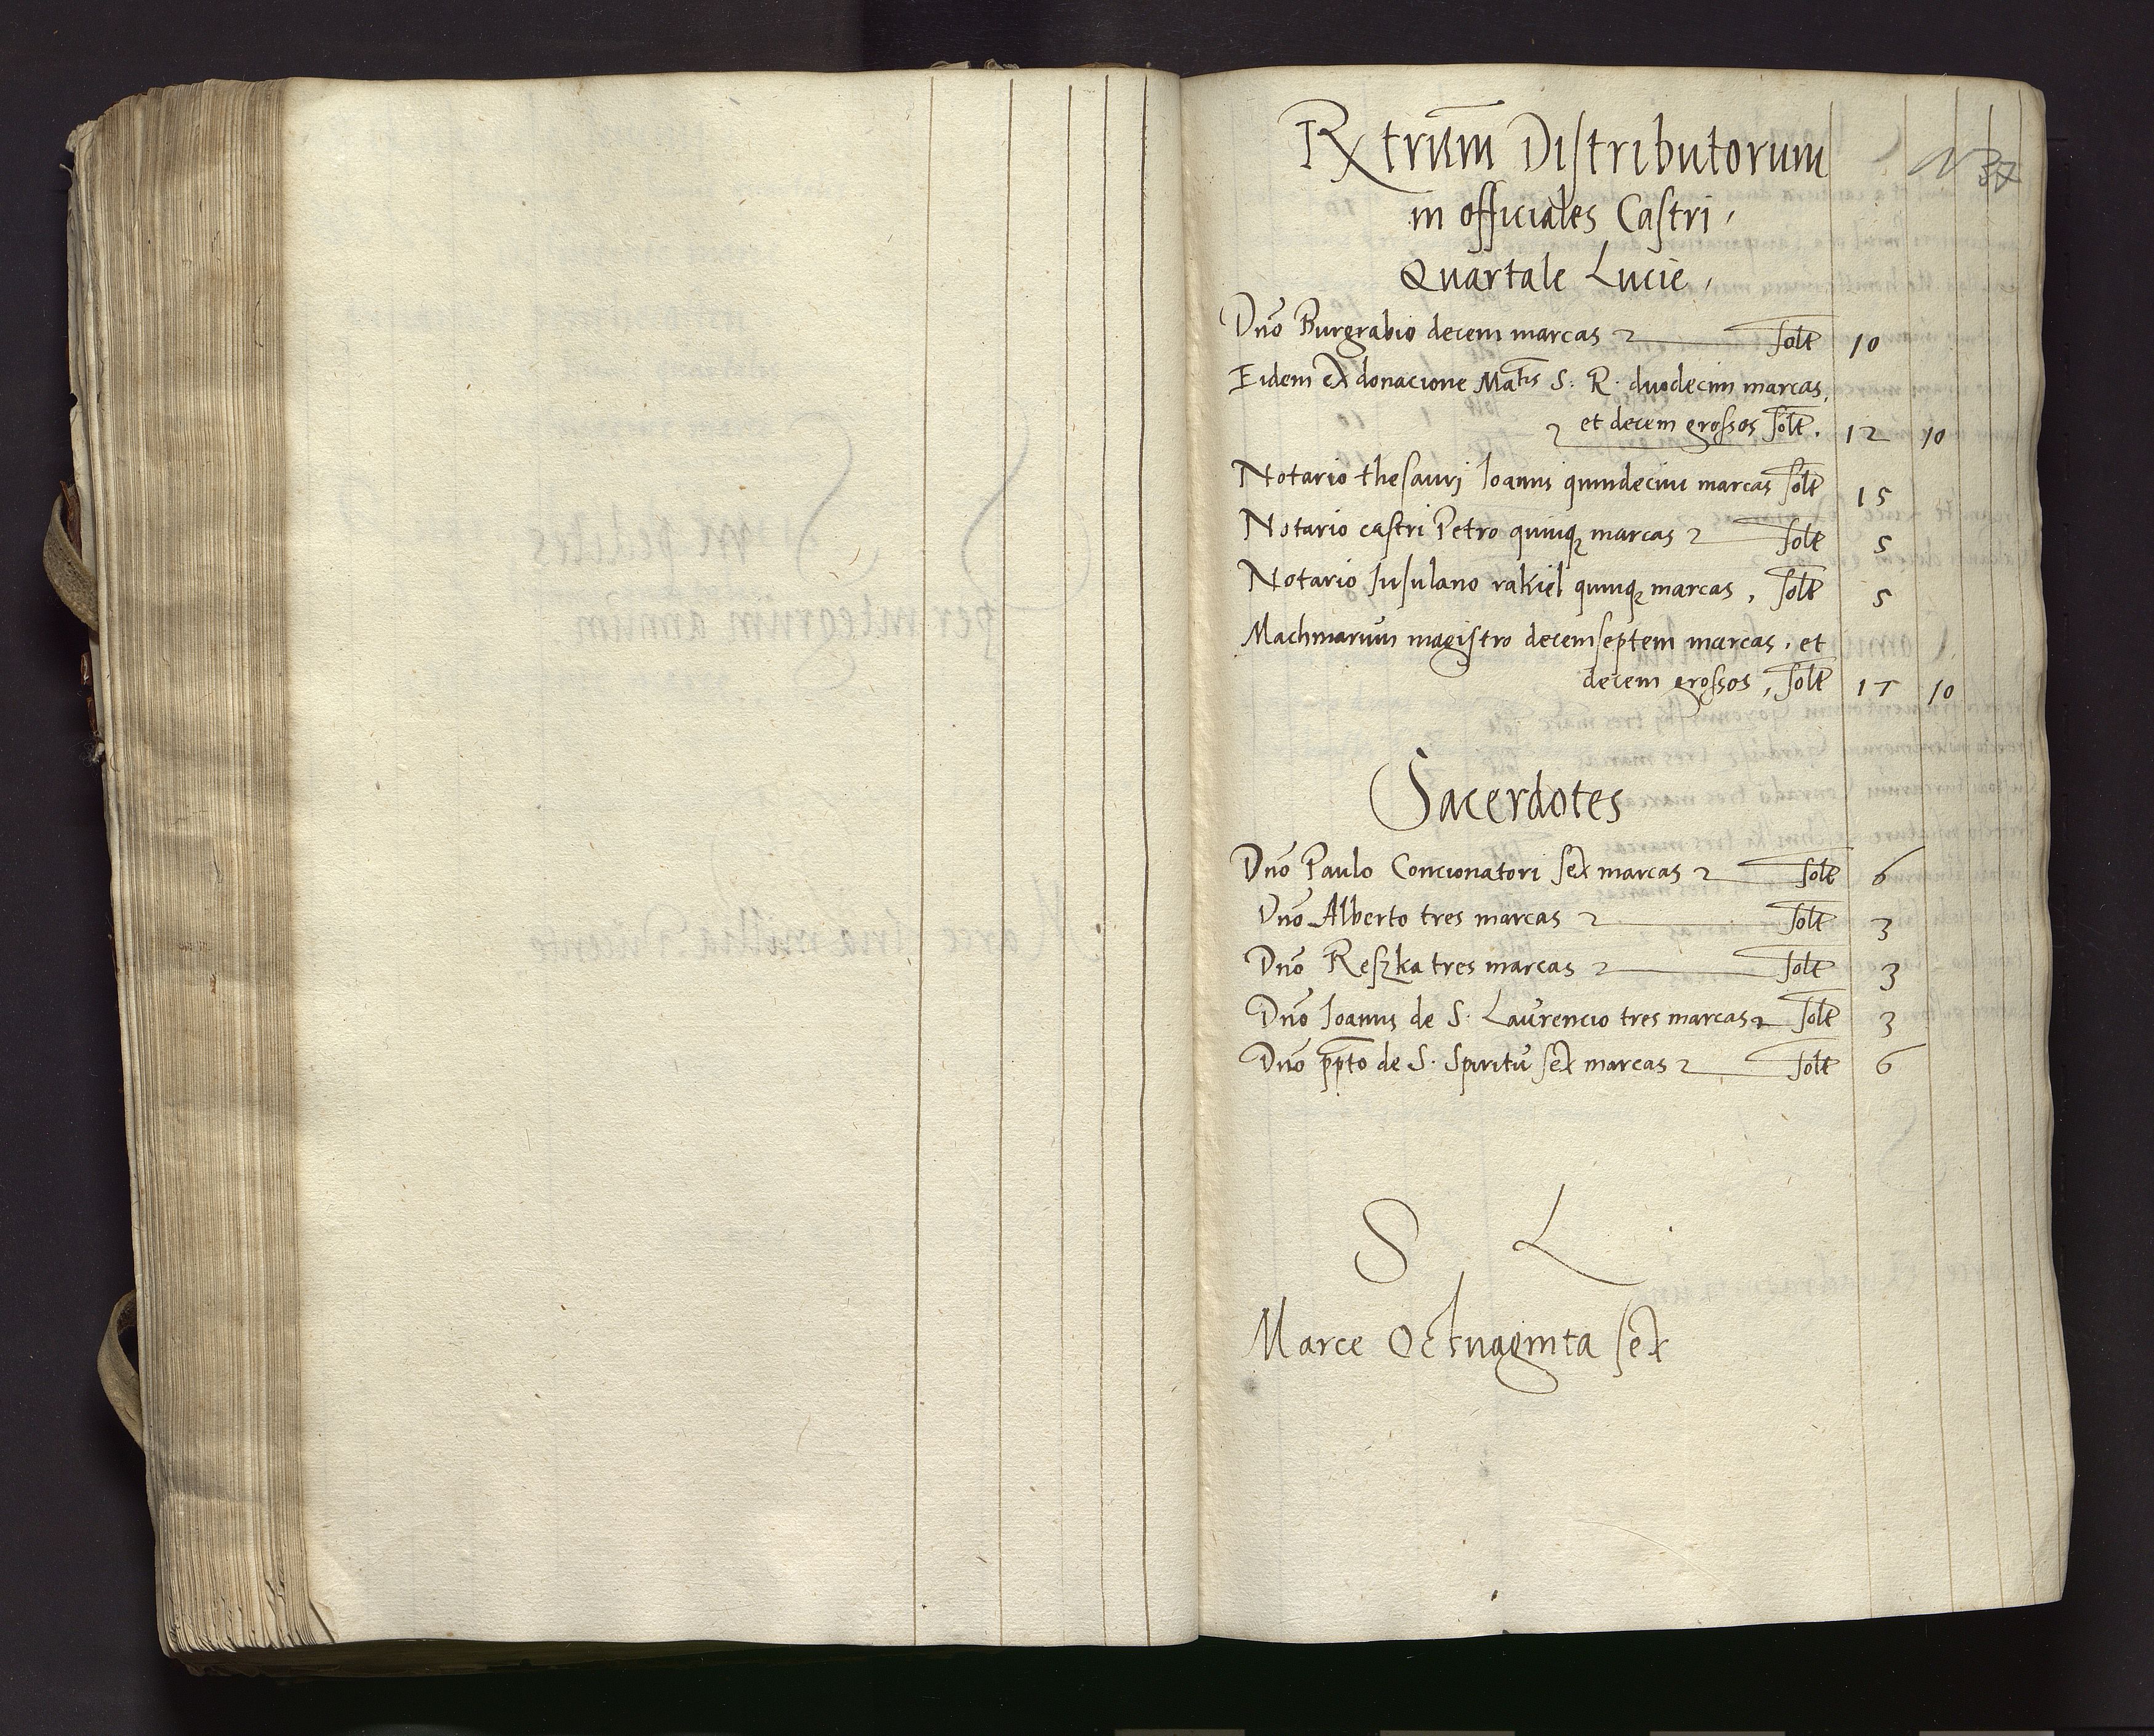 Rx̄trum Distributorum
N 37
in officiales Castri,
Quartale Lucie,
Dño Burgrabio decem marcas solt 10
Eidem ex donacione Matis S: R. duodecim marcas,
et decem grossos solt. 12 10
Notario thesaurj Ioanni quindecim marcas solt 15
Notario castri Petro quinqz marcas solt 5
Notario Insulano rakiel quinqz marcas, solt 5
Machinarum magistro decemseptem marcas, et
decem grossos, solt 17 10
Sacerdotes
Dño Paulo Concionatori sex marcas solt 6
Dño Alberto tres marcas solt 3
Dño Reszka tres marcas solt 3
Dño Ioannis de S. Laurencio tres marcas solt 3
Dño ppto de S. Spiritu sex marcas solt 6
S L
Marce Octuaginta sex